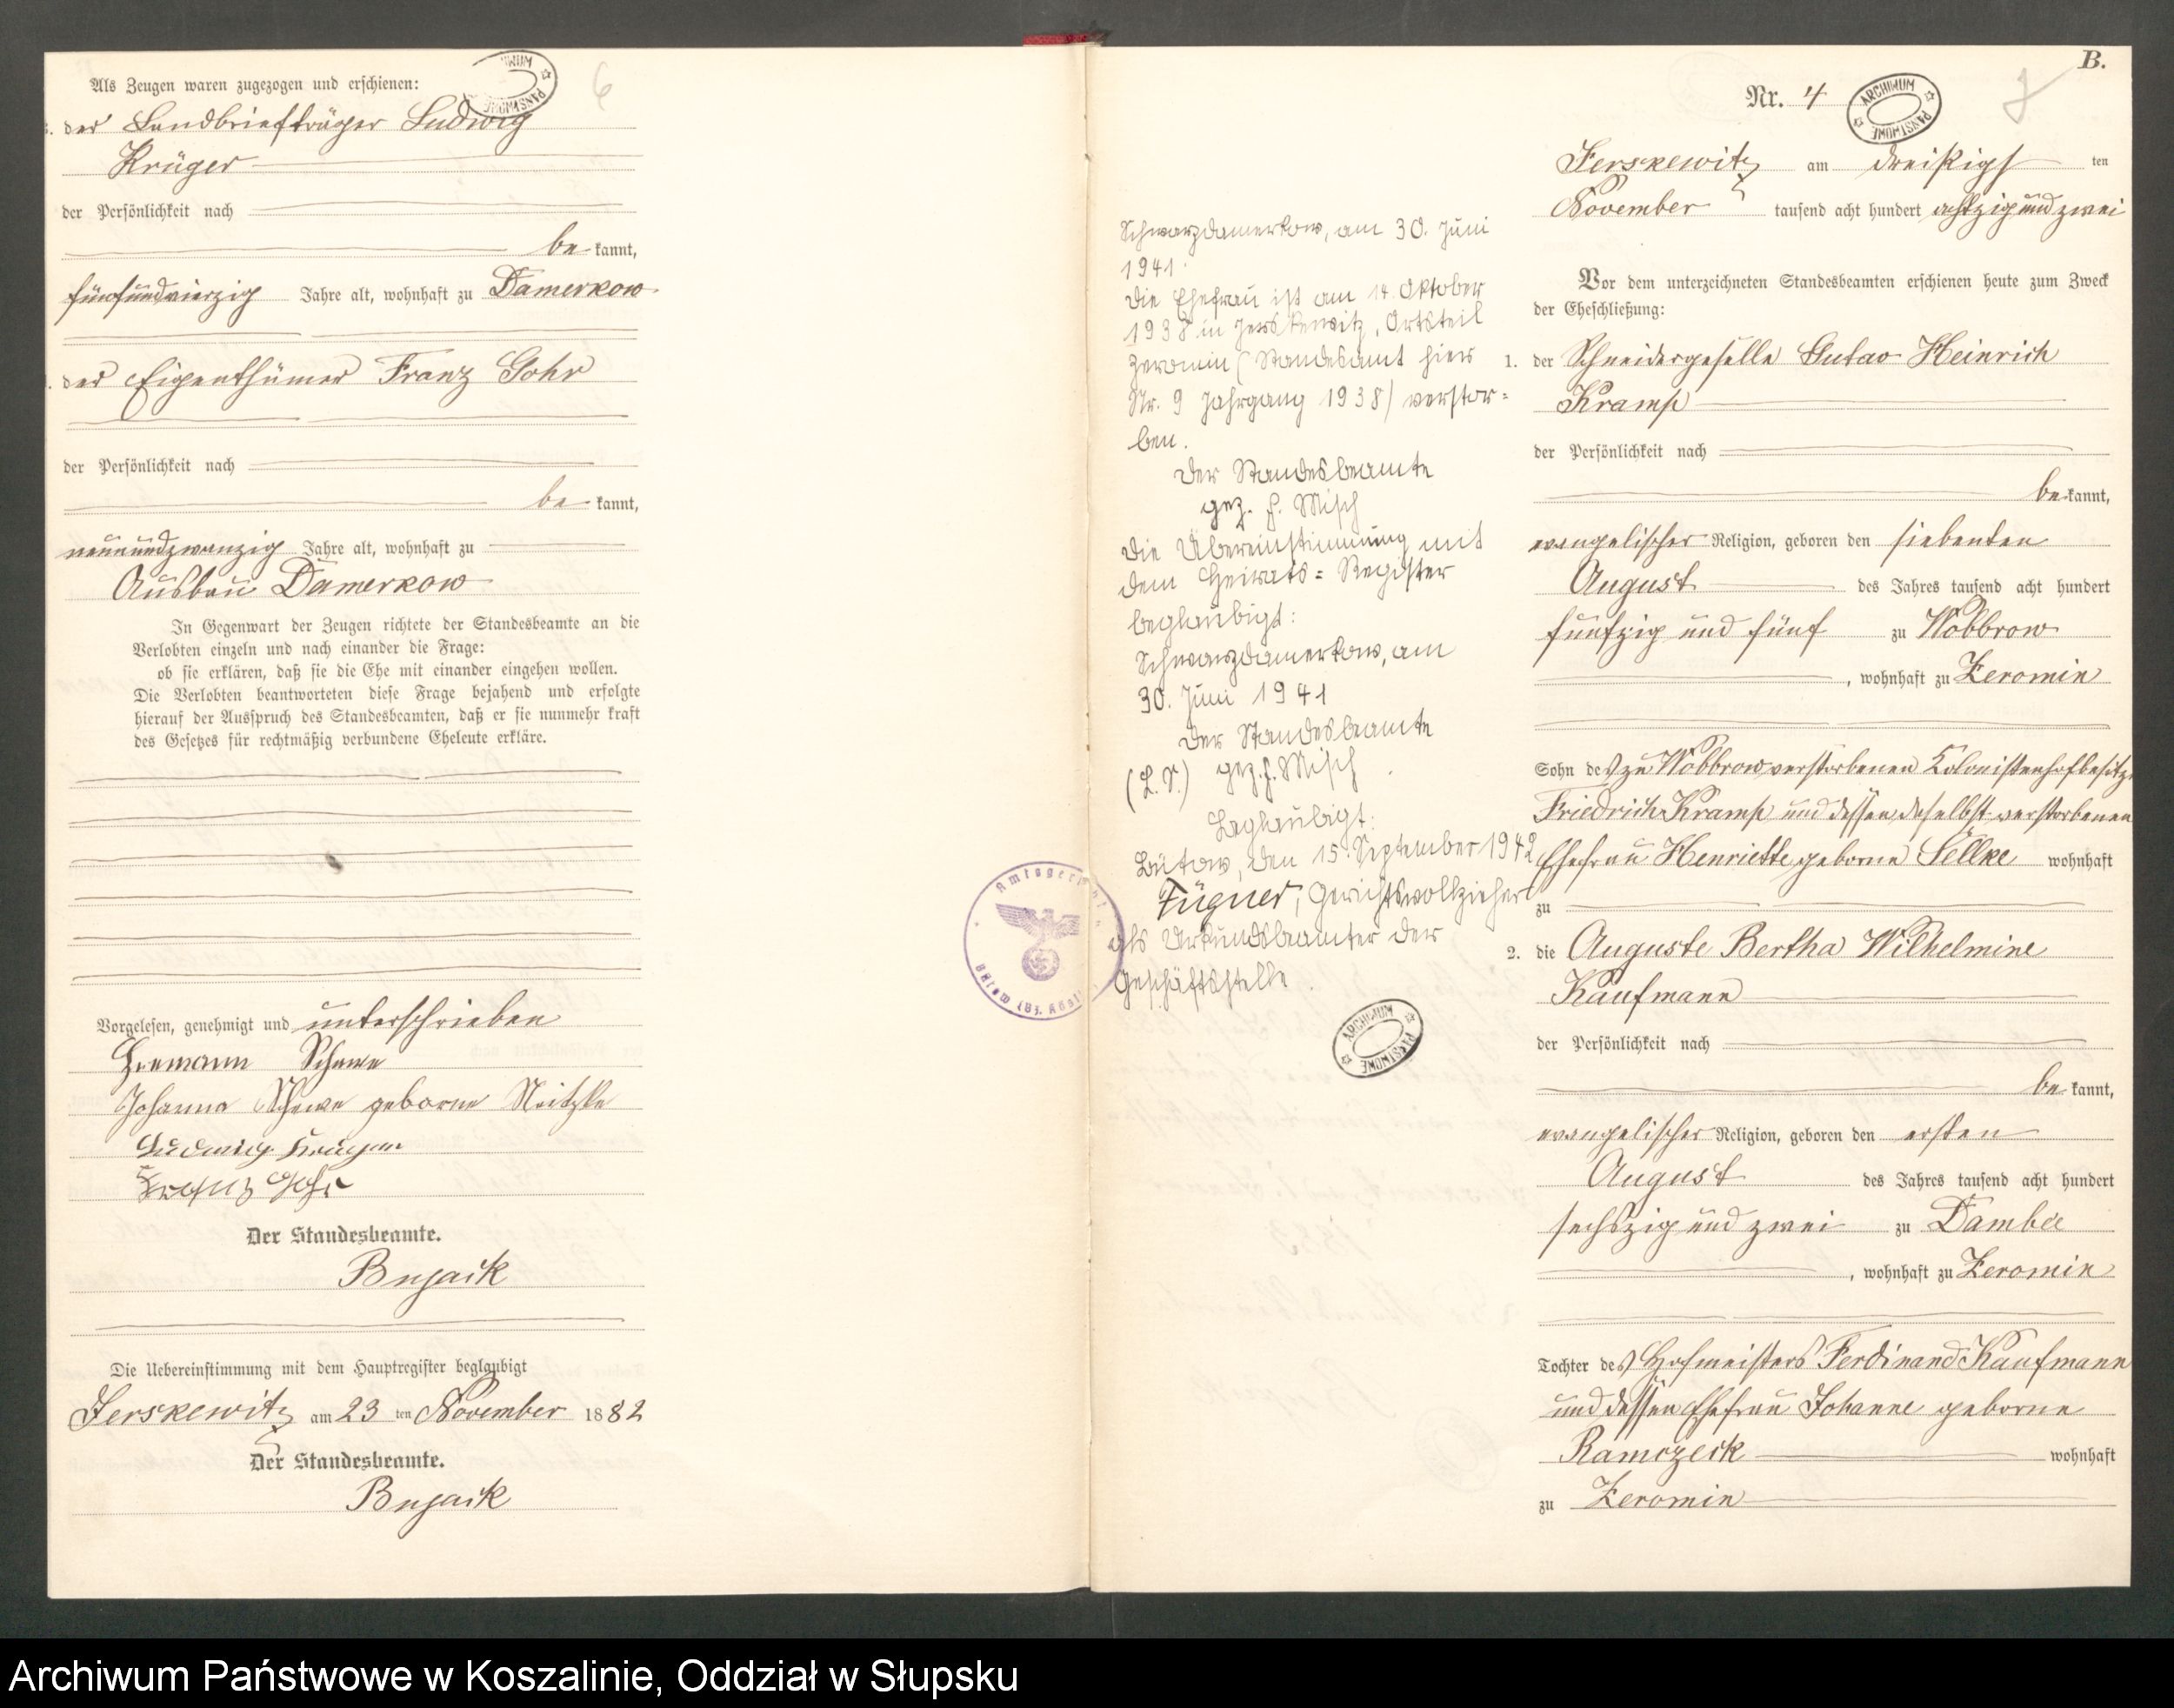 Als Zeugen waren zugezogen und erschienen:
der Landbriefträger Ludwig
Krüger
der Persönlichkeit nach
be kannt,
fünfundvierzig Jahre alt, wohnhaft zu Damerkow
der Eigenthümer Franz Gohr
der Persönlichkeit nach
be kannt,
neunundzwanzig Jahre alt, wohnhaft zu
Ausbau Damerkow
In Gegenwart der Zeugen richtete der Standesbeamte an die
Verlobten einzeln und nach einander die Frage:
ob sie erklären, daß sie die Ehe mit einander eingehen wollen.
Die Verlobten beantworteten diese Frage bejahend und erfolgte
hierauf der Ausspruch des Standesbeamten, daß er sie nunmehr kraft
des Gesetzes für rechtmäßig verbundene Eheleute erkläre.
Vorgelesen, genehmigt und unterschrieben
Hermann Schewe
Johanna Schewe geborne Neitzke
Ludwig Krüger
Franz Gohr
Der Standesbeamte.
Bujack
Die Uebereinstimmung mit dem Hauptregister beglaubigt
Jerskewitz am 23 ten November 1882
Der Standesbeamte.
Bujack
6
Schwarzdamerkow, am 30. Juni
1941.
Die Ehefrau ist am 14. Oktober
1938 in Jerskewitz, Ortsteil
Zeromin (Standesamt hier
Nr. 9 Jahrgang 1938) verstor=
ben.
Der Standesbeamte
gez. F. Misch
Die Übereinstimmung mit
dem Heirats=Register
beglaubigt:
Schwarzdamerkow, am
30. Juni 1941
Der Standesbeamte
(L.S.) gez. F. Misch
Beglaubigt:
Bütow, den 15. September 1942
Fügner, Gerichtsvollzieher
als Urkundsbeamter der
Geschäftsstelle.
ARCHIWUM PAŃSTWOWE
B.
Nr. 4
7
ARCHIWUM PAŃSTWOWE
Jerskewitz am dreißigs ten
November tausend acht hundert achtzig und zwei
Vor dem unterzeichneten Standesbeamten erschienen heute zum Zweck
der Eheschließung:
1. der Schneidergeselle Gutav Heinrich
Kramp
der Persönlichkeit nach
be kannt,
evangelischer Religion, geboren den siebenten
August des Jahres tausend acht hundert
fünfzig und fünf zu Wobbrow
, wohnhaft zu Zeromin
Sohn des zu Wobbrow verstorbenen Kolonistenhofbesitz
Friedrich Kramp und dessen daselbst verstorbenen
Ehefrau Henriette geborne Sellke wohnhaft
zu
2. die Auguste Bertha Wilhelmine
Kaufmann
der Persönlichkeit nach
be kannt,
evangelischer Religion, geboren den ersten
August des Jahres tausend acht hundert
sechszig und zwei zu Dambee
, wohnhaft zu Zeromin
Tochter des Hofmeisters Ferdinand Kaufmann
und dessen Ehefrau Johanne geborne
Ramczeck wohnhaft
zu Zeromin
Archiwum Państwowe w Koszalinie, Oddział w Słupsku